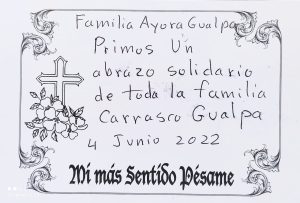 Familia Ayora Gualpa
Primos Un
abrazo solidario
de toda la familia
Carrasco Gualpa
4 Junio 2022
Mi más Sentido Pésame